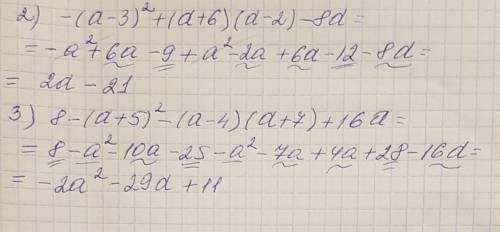 2) -(a-3)²+(a+6)(a-2)-8a=
=-a²+6a-9+a²-2a+6a-12-8a=
= 2a-21
3) 8-(a+5)²-(a-4)(a+7)+16a=
=8-a²-10a-25-a²-7a+4a+28-16a=
=-2a²-29a+11